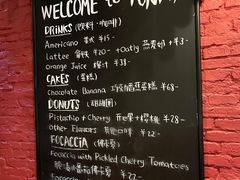 WELCOME to
DRINKS (饮料·咖啡)
Americano 美式 ¥15-
Lattee 拿铁 ¥20- +Oatly 燕麦奶 +¥3-
Orange Juice 橙汁 ¥38-
CAKES (蛋糕)
Chocolate Banana 巧克力香蕉蛋糕 ¥68-
DONUTS (甜甜圈)
Pistachio + Cherry 开心果+樱桃 ¥28-
Other Flavors 其他口味 ¥22-
FOCACCIA
Focaccia with Pickled Cherry Tomatoes
¥22-